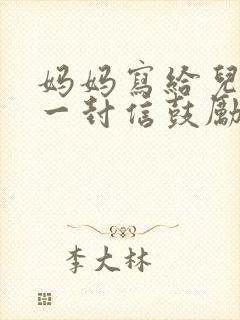 妈妈寫給兒
一封信鼓勵
李大林